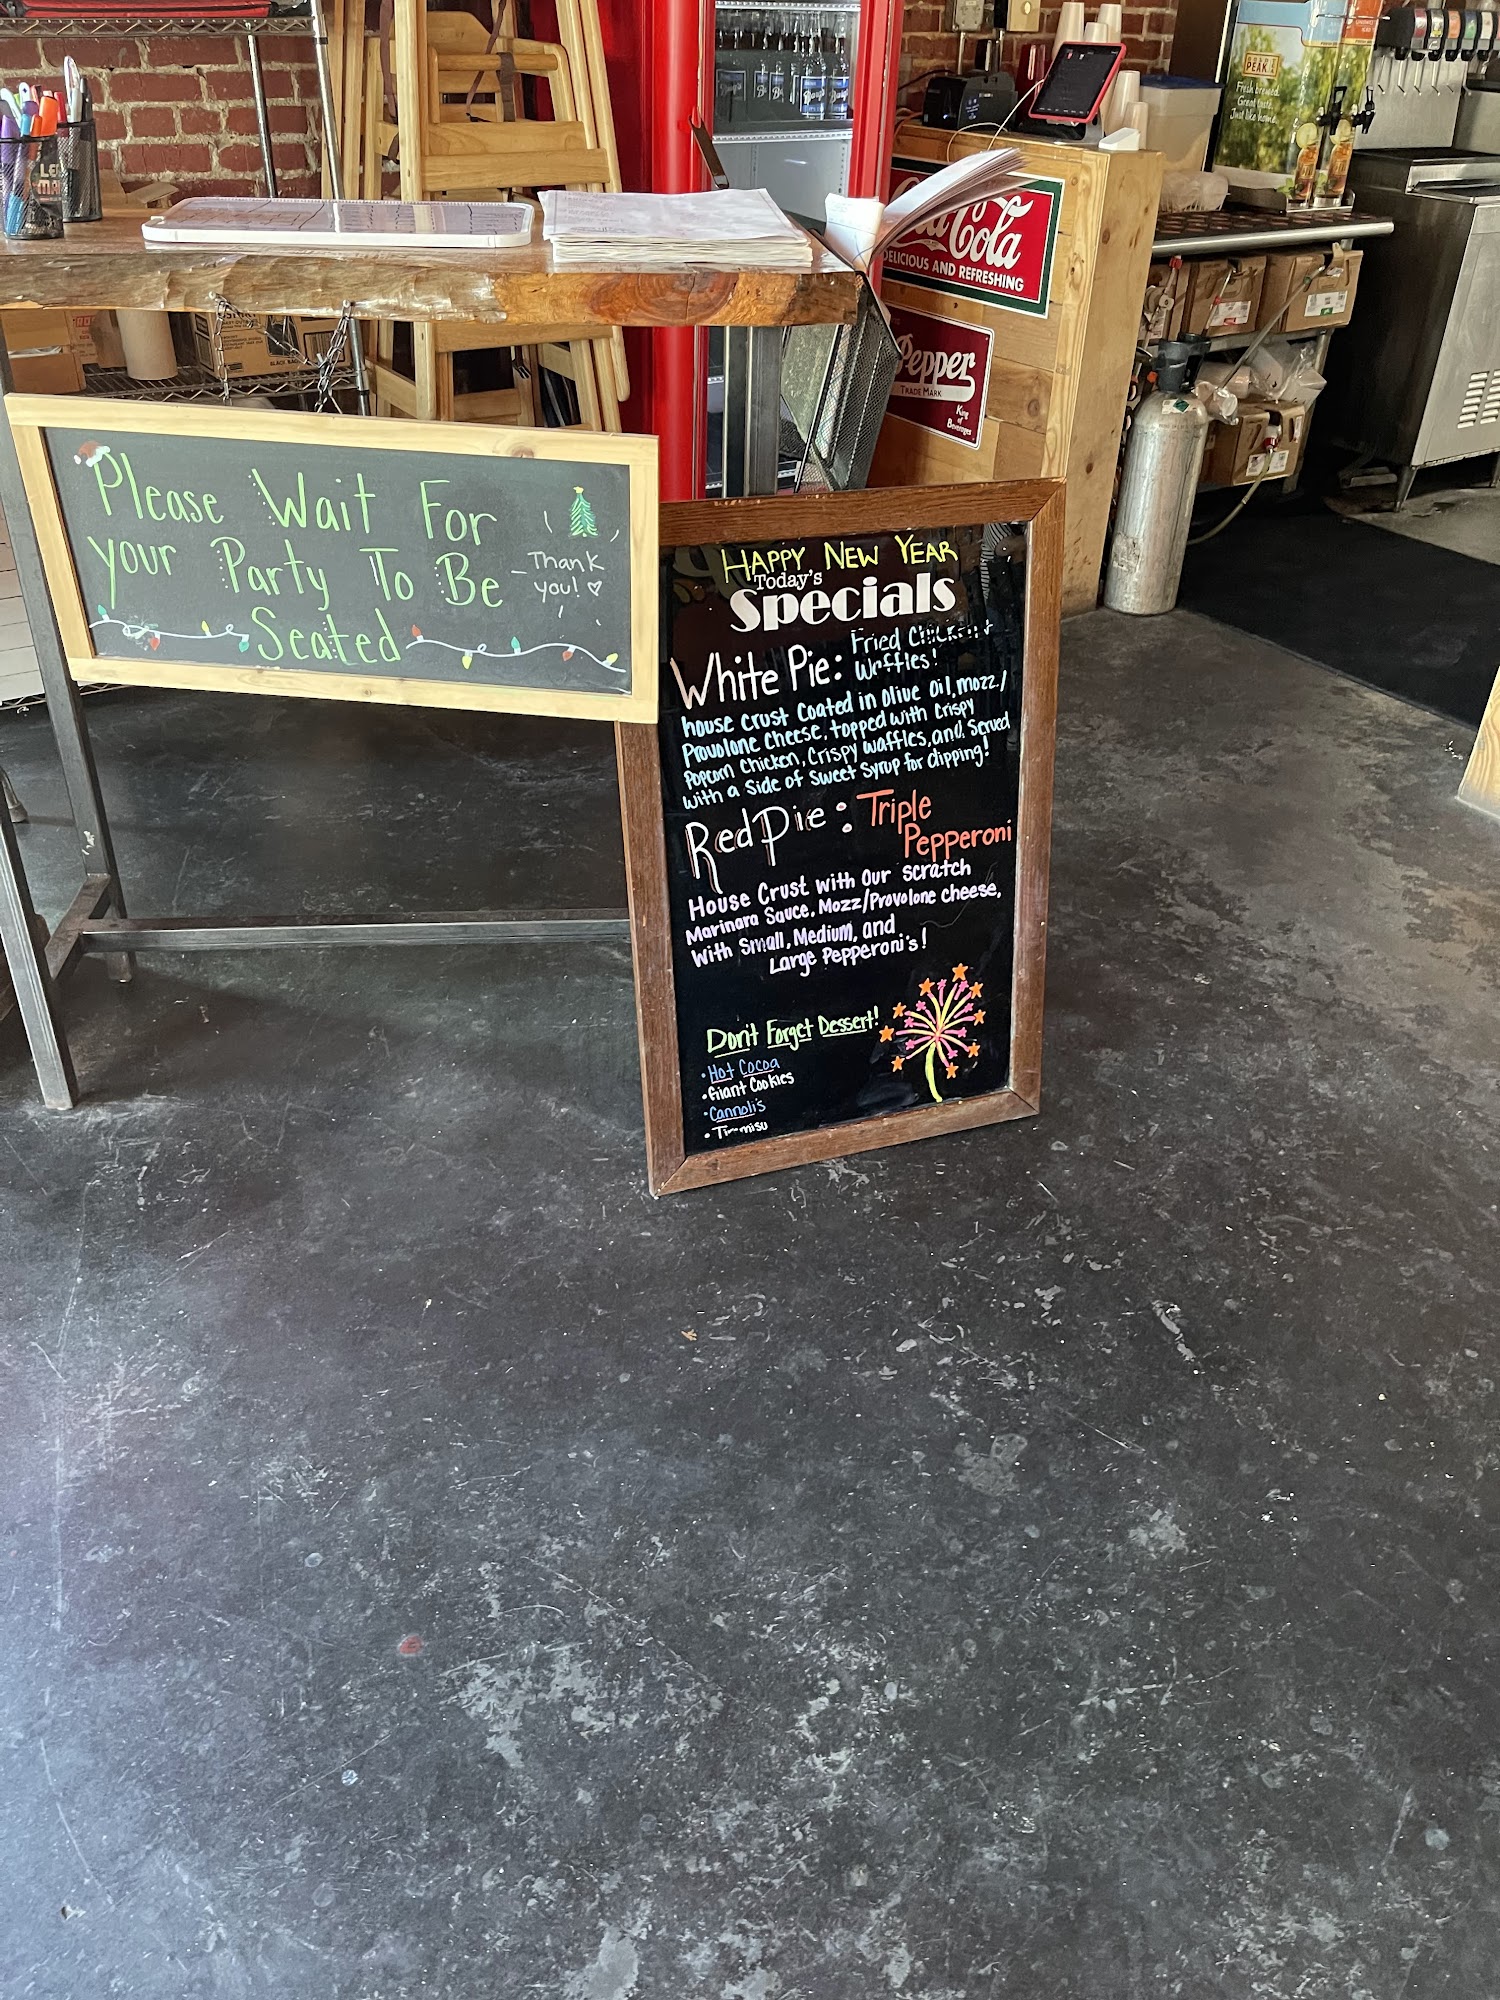 Please Wait For
your Party To Be
Seated
Thank
you!
HAPPY NEW YEAR
Today's
Specials
White Pie: Fried Chicken &
Waffles!
house crust Coated in Olive Oil, mozz/
Provolone cheese, topped with Crispy
Popcorn Chicken, Crispy waffles, and Served
with a side of sweet syrup for dipping!
Red Pie: Triple
Pepperoni
House Crust with Our scratch
Marinara Sauce, Mozz/Provolone cheese,
with Small, Medium, and
Large Pepperoni's!
Don't Forget Dessert!
• Hot Cocoa
• Giant Cookies
• Cannoli's
Cola
DELICIOUS AND REFRESHING
Pepper
TRADE MARK
King
of
Beverages
PEAK
Fresh brewed.
Great taste.
Just like home.
Barq's